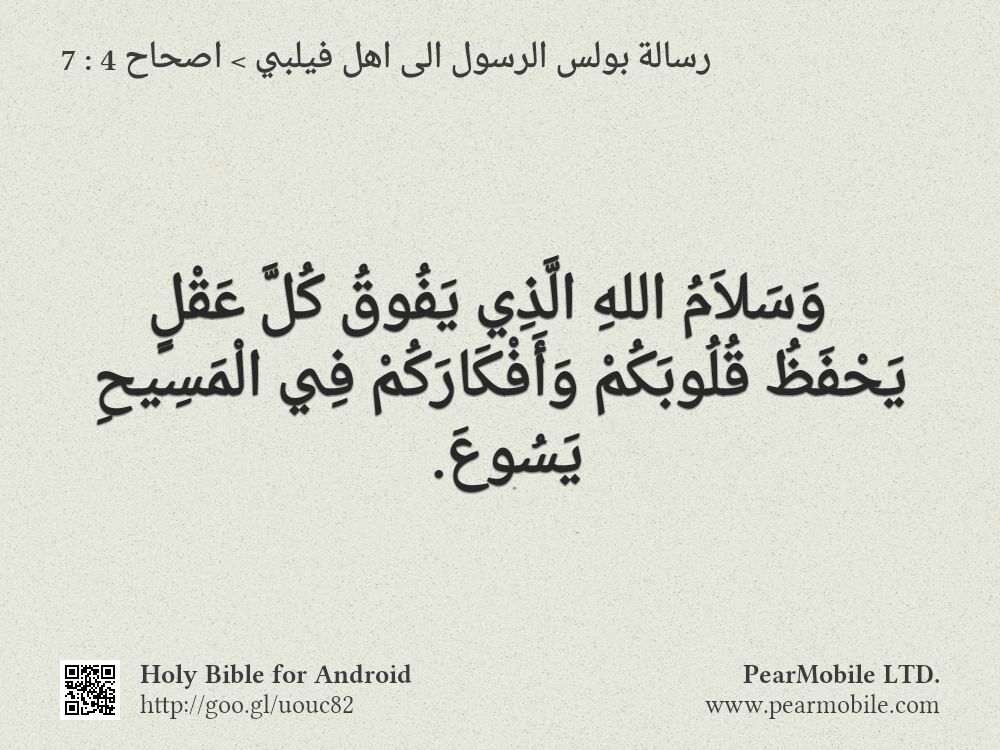 رسالة بولس الرسول الى اهل فيلبي > اصحاح 4 : 7
وَسَلاَمُ اللهِ الَّذِي يَفُوقُ كُلَّ عَقْلٍ
يَحْفَظُ قُلُوبَكُمْ وَأَفْكَارَكُمْ فِي الْمَسِيحِ
يَسُوعَ.
Holy Bible for Android
http://goo.gl/uouc82
PearMobile LTD.
www.pearmobile.com